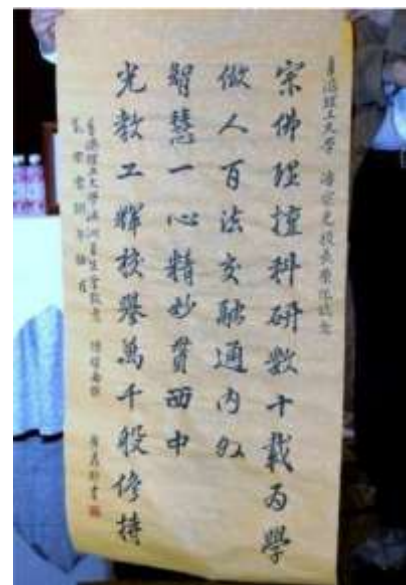 香港理工大學 潘宗光校長榮休誌念
宗佛理擅科研數十載为學
做人百法交融通内外
智慧一心精妙貫西中
光教工輝校譽萬千般修持
香港理工大學
書